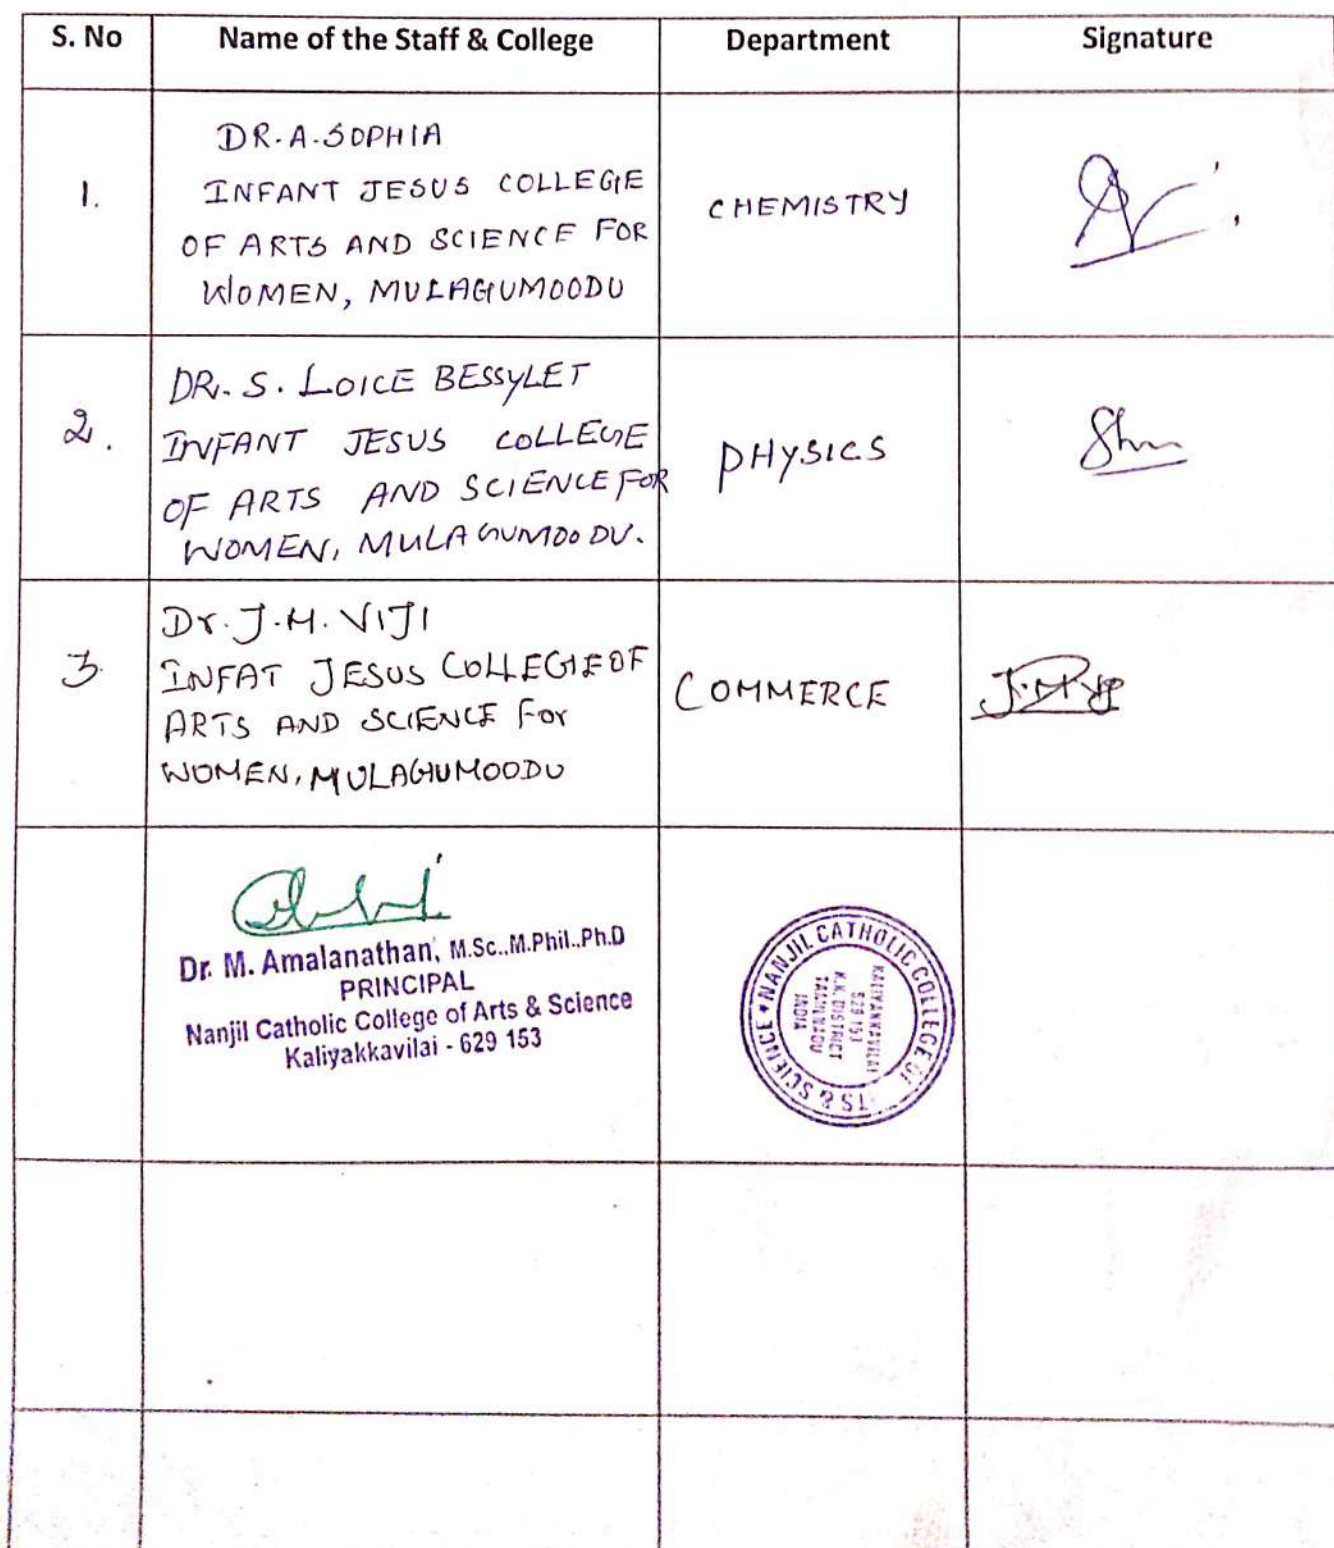 S. No Name of the Staff & College Department Signature
DR. A. SOPHIA
1. INFANT JESUS COLLEGE CHEMISTRY
OF ARTS AND SCIENCE FOR
WOMEN, MULAGUMOODU
DR. S. LOICE BESSYLET
2. INFANT JESUS COLLEGE PHYSICS
OF ARTS AND SCIENCE FOR
WOMEN, MULAGUMOODU.
Dr. J.M. VIJI
3. INFAT JESUS COLLEGE OF COMMERCE
ARTS AND SCIENCE For
WOMEN, MULAGUMOODU
Dr. M. Amalanathan, M.Sc.,M.Phil.,Ph.D
PRINCIPAL
Nanjil Catholic College of Arts & Science
Kaliyakkavilai - 629 153
NANJIL CATHOLIC COLLEGE OF TS & SCIENCE
KALIYAKKAVILAI
629 153
K.K. DISTRICT
TAMILNADU
INDIA